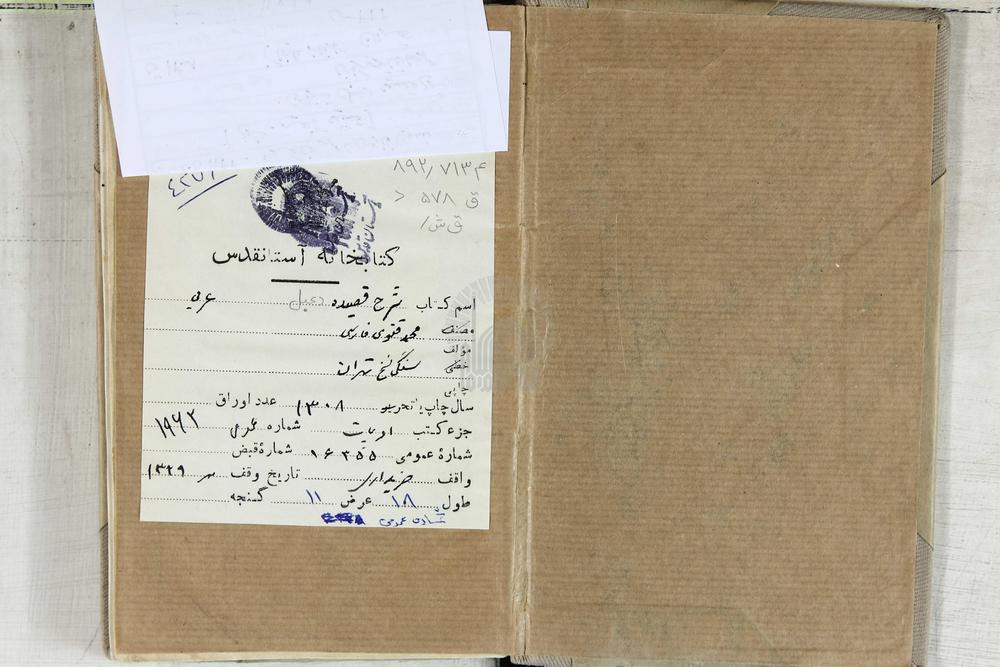 ۸۹۲٫۷۱۳۴
ق ۵۷۸ د
ق ش/
کتابخانه آستانقدس
اسم کتاب شرح قصیده دعبل عربی
مصنف محمد قنوی فارسی
مؤلف
خطی سنگی نسخ تهران
چاپی
سال چاپ یا تحریر ۱۳۰۸ عدد اوراق
جزء کتب ادبیات شماره عمومی ۱۹۶۲
شمارهٔ عمومی ۱۶۳۵۵ شمارهٔ قبض
واقف خریداری تاریخ وقف مهر ۱۳۲۹
طول ۱۸ عرض ۱۱ گنجه
عمومی